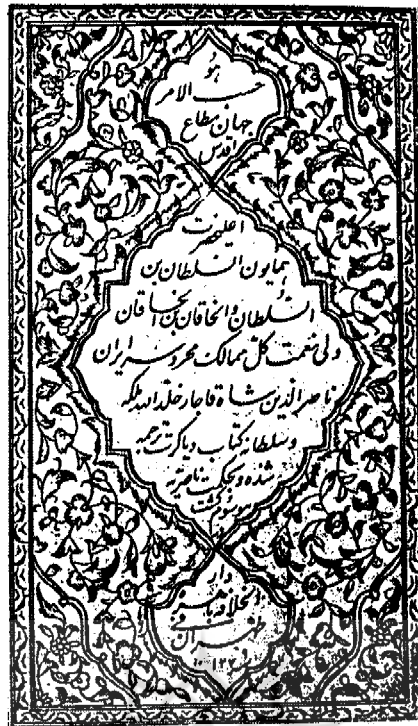 هو
حسب الامر
جهان مطاع
اقدس
اعلیحضرت
همایون السلطان بن
السلطان و الخاقان بن الخاقان
ولی نعمت کل ممالک محروسه ایران
ناصر الدین شاه قاجار خلد الله ملکه
و سلطانه کتاب دیاکرت ترجمه
شده و بحکمت ناصریه
موسوم گشت
دار
الخلافه
طهران